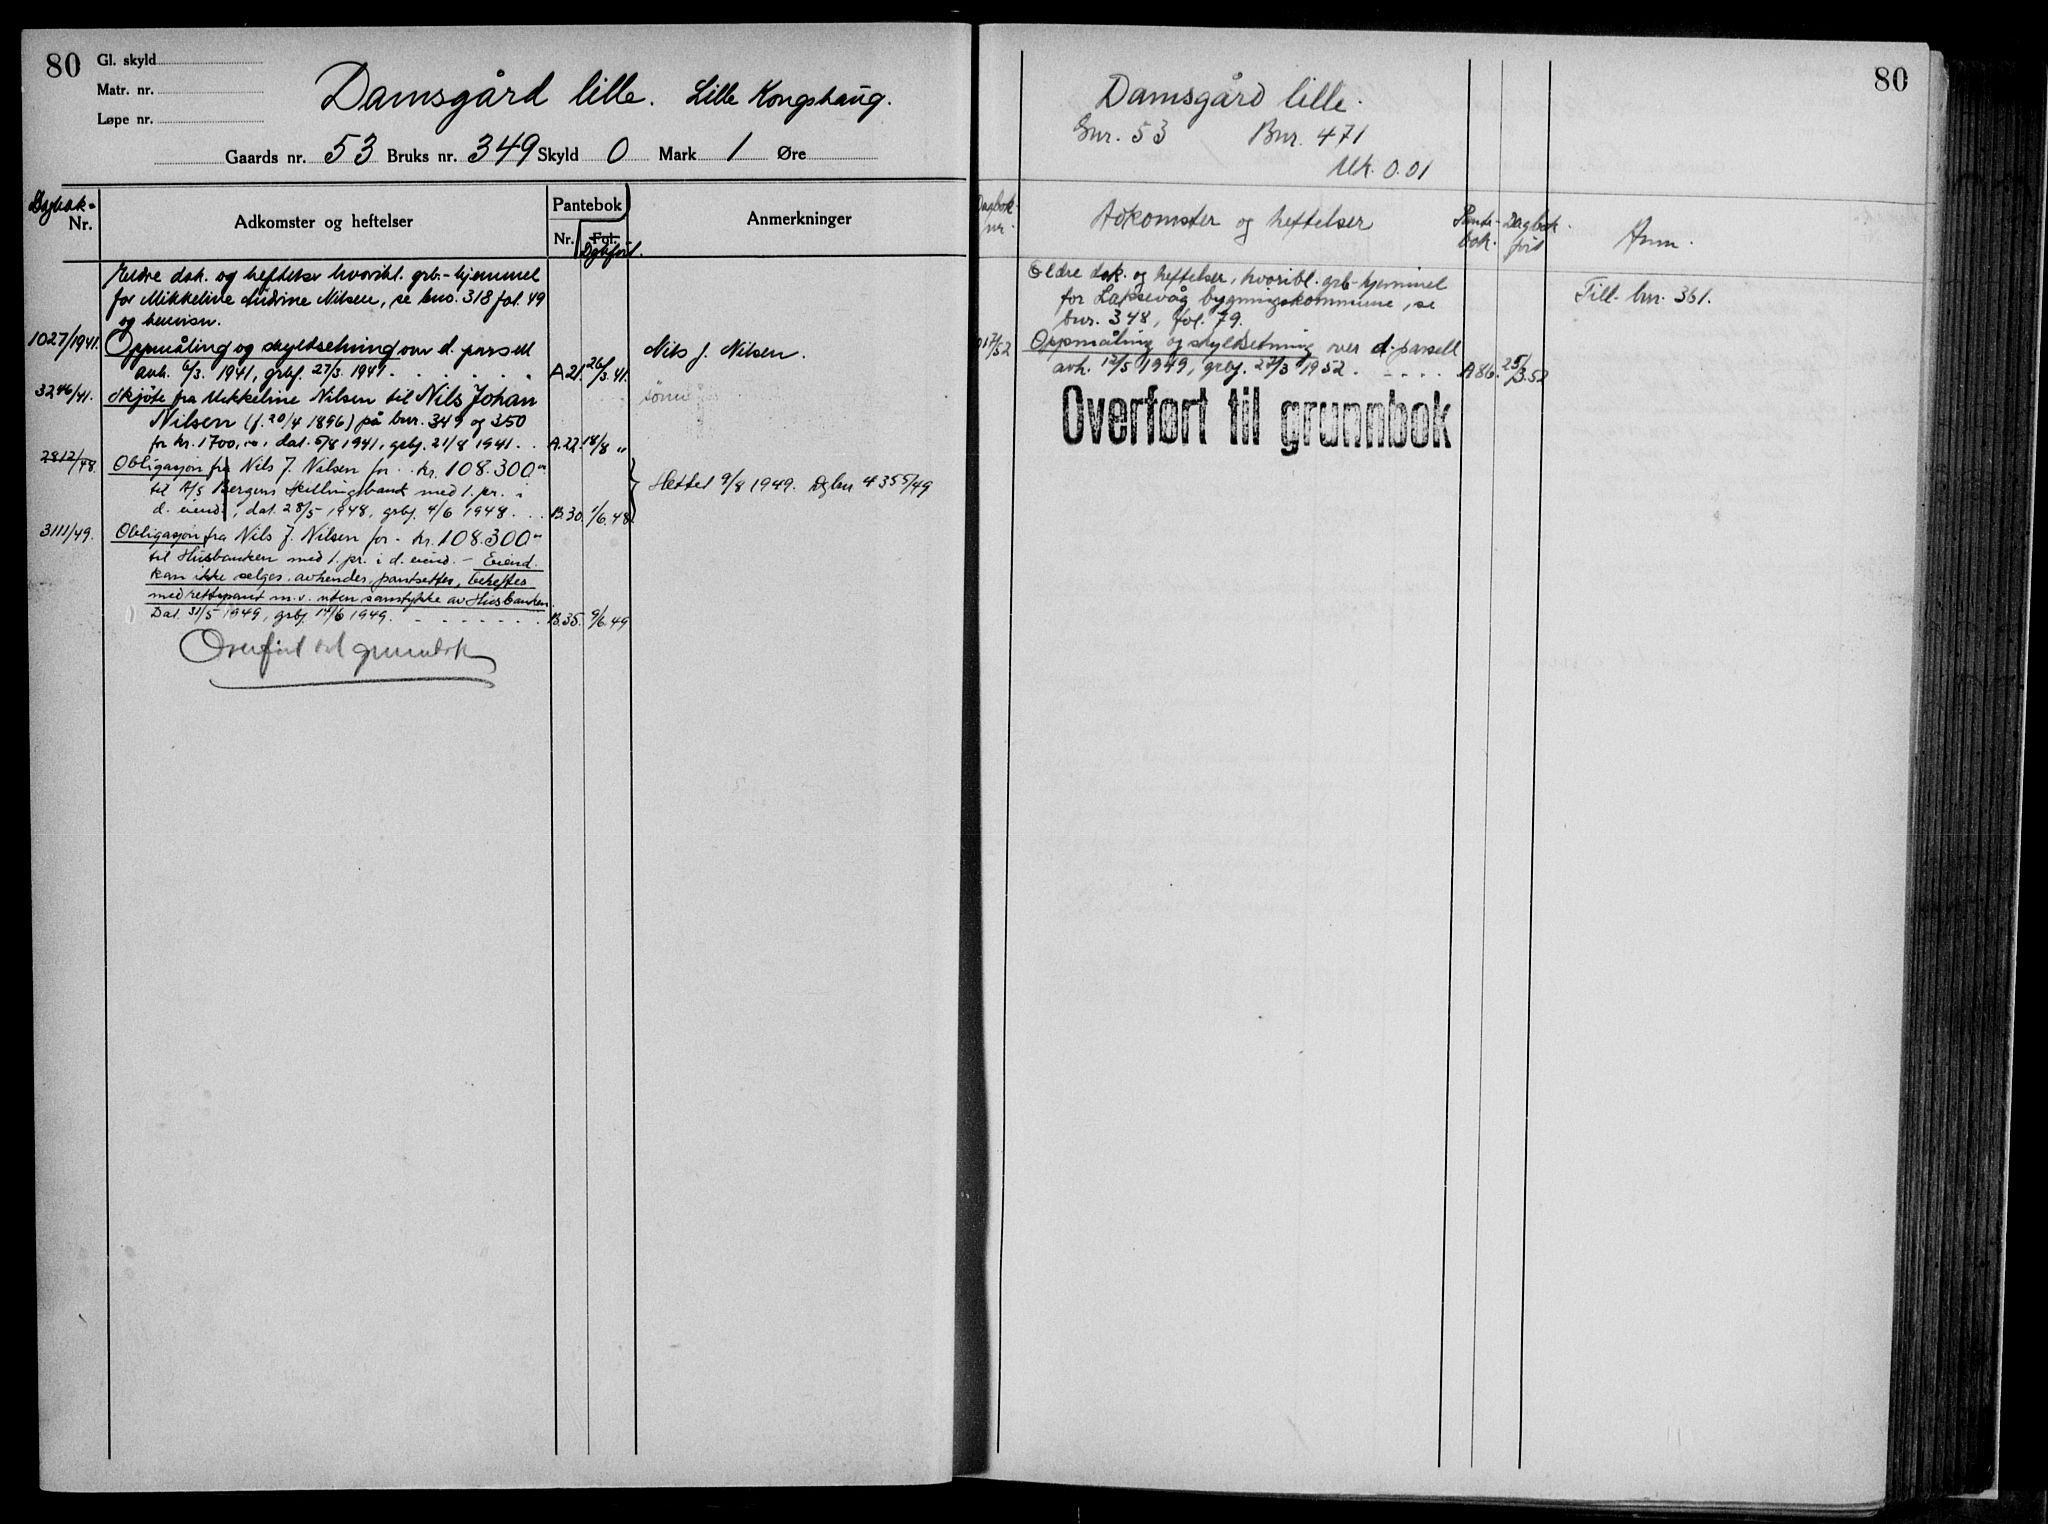 80
Gl. skyld
Matr. nr.
Løpe nr.
Damsgård lille. Lille Kongshaug.
Gaards nr. 53 Bruks nr. 349 Skyld 0 Mark 1 Øre
Dagbok-
Nr.
Adkomster og heftelser
Pantebok
Nr.
Fol.
Dgbført.
Anmerkninger
Eldre dok. og heftelser hvoribl. grb.-hjemmel
for Mikkeline Nilsen, se bno. 318 fol. 49
og henvisn.
1027/1941. Oppmåling og skyldsetning over d. parsell
avh. 6/3. 1941, grbf. 27/3. 1941. A 21. 26/3. 41. Nils J. Nilsen.
3246/41. Skjöte fra Mikkeline Nilsen til Nils Johan
Nilsen (f. 20/4 1896) på bnr. 349 og 350
for kr. 1700,00, dat. 5/8 1941, grbf. 21/8 1941. A. 22. 18/8 "
2812/48. Obligasjon fra Nils J. Nilsen for kr. 108.300
til A/S Bergens Skillingsbank med 1. pr. i
d. eiend., dat. 28/5 1948, grbf. 4/6 1948. B. 30. 1/6. 48. Slettet 9/8 1949. Dgbnr 4355/49
3111/49. Obligasjon fra Nils J. Nilsen for kr. 108.300
til Husbanken med 1. pr. i d. eiend. - Eiend.
kan ikke selges, avhendes, pantsettes, beheftes
med rettspant m.v. uten samtykke av Husbanken.
Dat. 31/5 1949, grbf. 14/6 1949. B. 35. 9/6. 49
Overført til grunnbok
80
Damsgård lille.
Gnr. 53 Bnr. 471
Mk. 0.01
Dagbok
nr.
Adkomster og heftelser
Pante-
bok.
Dagbok
ført
Anm.
Eldre dok. og heftelser, hvoribl. grb-hjemmel
for Laksevåg bygningskommune, se
bnr. 348, fol. 79.
Till. bnr. 361.
Oppmåling og skyldsetning over d. parsell
avh. 12/5 1949, grbf. 27/3 1952. A 86. 25/3.52
Overført til grunnbok